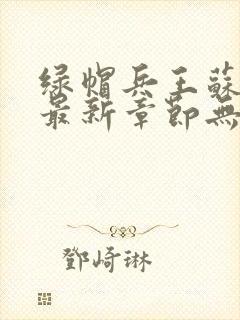 绿帽兵王蘇
最新章節無
鄧崎琳